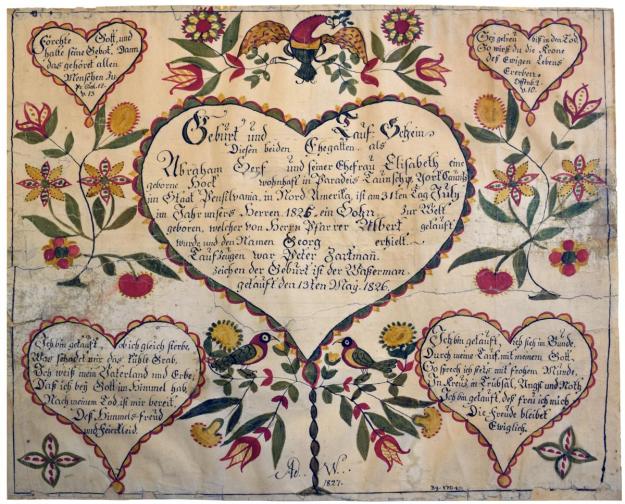 Förchte Gott, und
halte seine Gebot. Dann
das gehöret allen
Menschen Zu
v. 13
Sey getreu biß in den Tod
So wirst du die Krone
deß Ewigen Lebens
Ererben.
Offenb. 2.
v. 10.
Gebürt und Tauf-Schein
Diesen beiden Ehegatten, als
Abraham und seiner Ehefrau Elisabeth eine
geborne Hock wohnhaft in Paradeis Taunschip, York Caunty
im Staat Pensilvania, in Nord Amerika, ist am 31ten Tag July
im Jahr unsers Herren 1825 ein Sohn zur Welt
geboren, welcher von Herrn Pfarrer Albert getäuft
wurde und den Namen Georg erhielt.
Taufzeugen war Peter Zartman.
zeichen der Gebürt ist der Waßerman.
getäuft den 13ten May. 1826.
Ich bin getäuft, ob ich gleich sterbe,
Was schadet mir das kühle Grab.
Ich weiß mein Vaterland und Erbe,
Daß ich bey Gott im Himmel hab
Nach meinem Tod ist mir bereit
Deß Himmels-freud
und Feierkleid.
Ich bin getäuft, ich steh in Bunde,
Durch meine Tauf, mit meinem Gott.
So sprech ich stets mit frohem Munde,
In Kreuz, in Trübsal, Angst und Noth
Ich bin getäuft, deß freu ich mich
Die Freude bleibet
Ewiglich.
Ad. W.
1827.